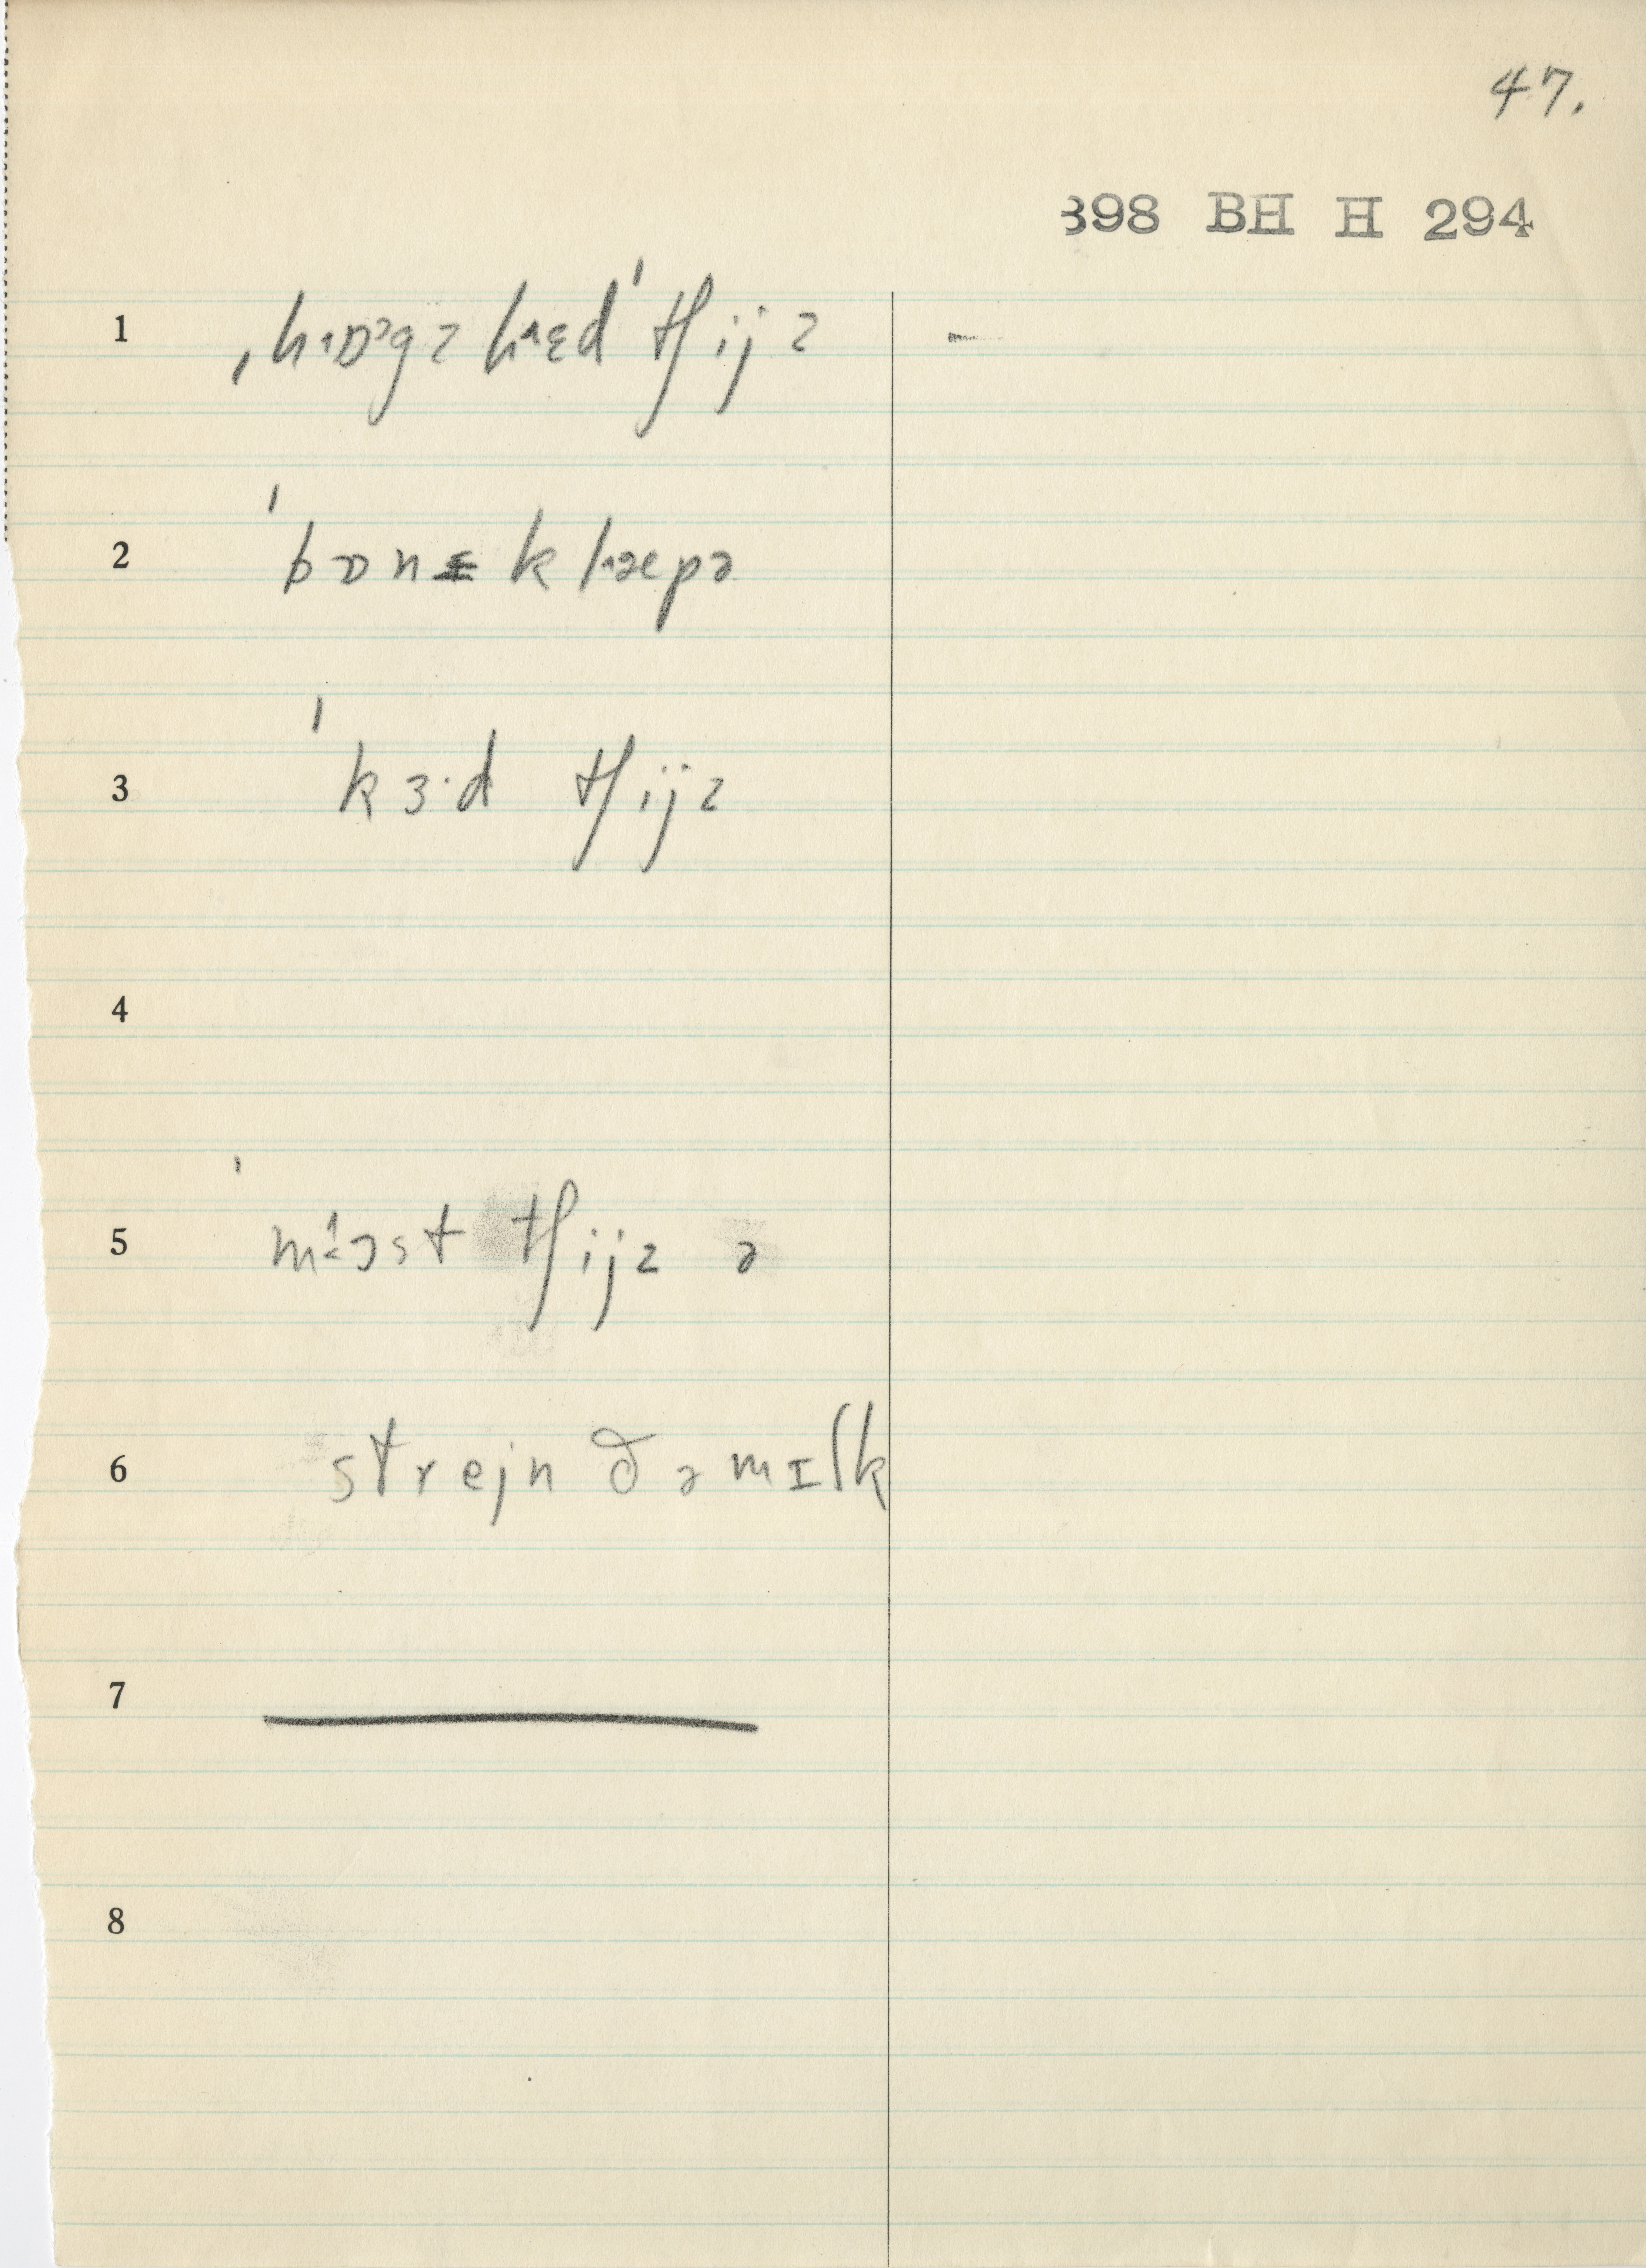 47.
398 BH H 294
1 ˌhɒˑᵊgzhɛˑd ˈtʃijz –
2 ˈbɒnɪklæˑpə
3 ˈkɜˑd tʃijz
4
5 ˈmɔˑst tʃijz ə
6 strejn ðə mɪlk
7
8